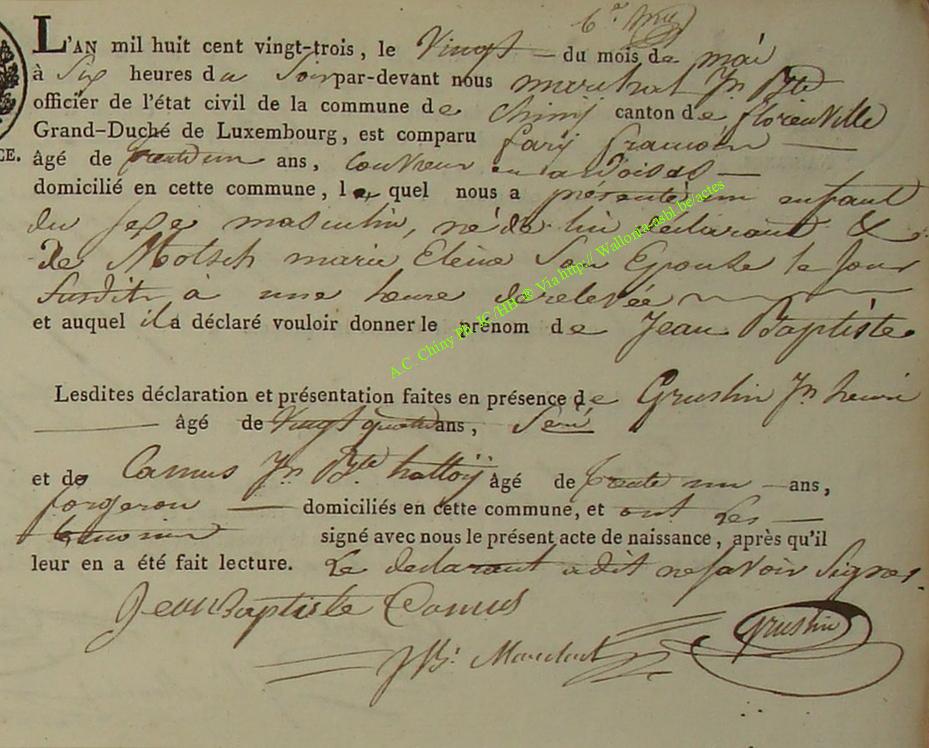 L'AN mil huit cent vingt-trois, le Vingt du mois de mai
à Six heures du Soir par-devant nous marechal Jn Bte
officier de l'état civil de la commune de Chiny canton de florenville
Grand-Duché de Luxembourg, est comparu
CE. âgé de trente un ans, Couvreur en ardoises
domicilié en cette commune, lequel nous a présenté un enfant
du sexe masculin, né de lui déclarant &
de Motsch marie Elene Son Epouse le Jour
Susdit à une heure de relevée
et auquel il a déclaré vouloir donner le prénom de Jean Baptiste
Lesdites déclaration et présentation faites en présence de Grustin Jn henri
âgé de Vingt quatre ans,
et de Camus Jn Bte hattoy âgé de trente un ans,
forgeron domiciliés en cette commune, et ont Les
temoins signé avec nous le présent acte de naissance, après qu'il
leur en a été fait lecture. Le declarant a dit ne savoir Signer.
Jean Baptiste Camus
Grustin
JB: Marechal
A.C. Chiny Ph. JC /HB ® Via http:// Wallonia-asbl.be/actes